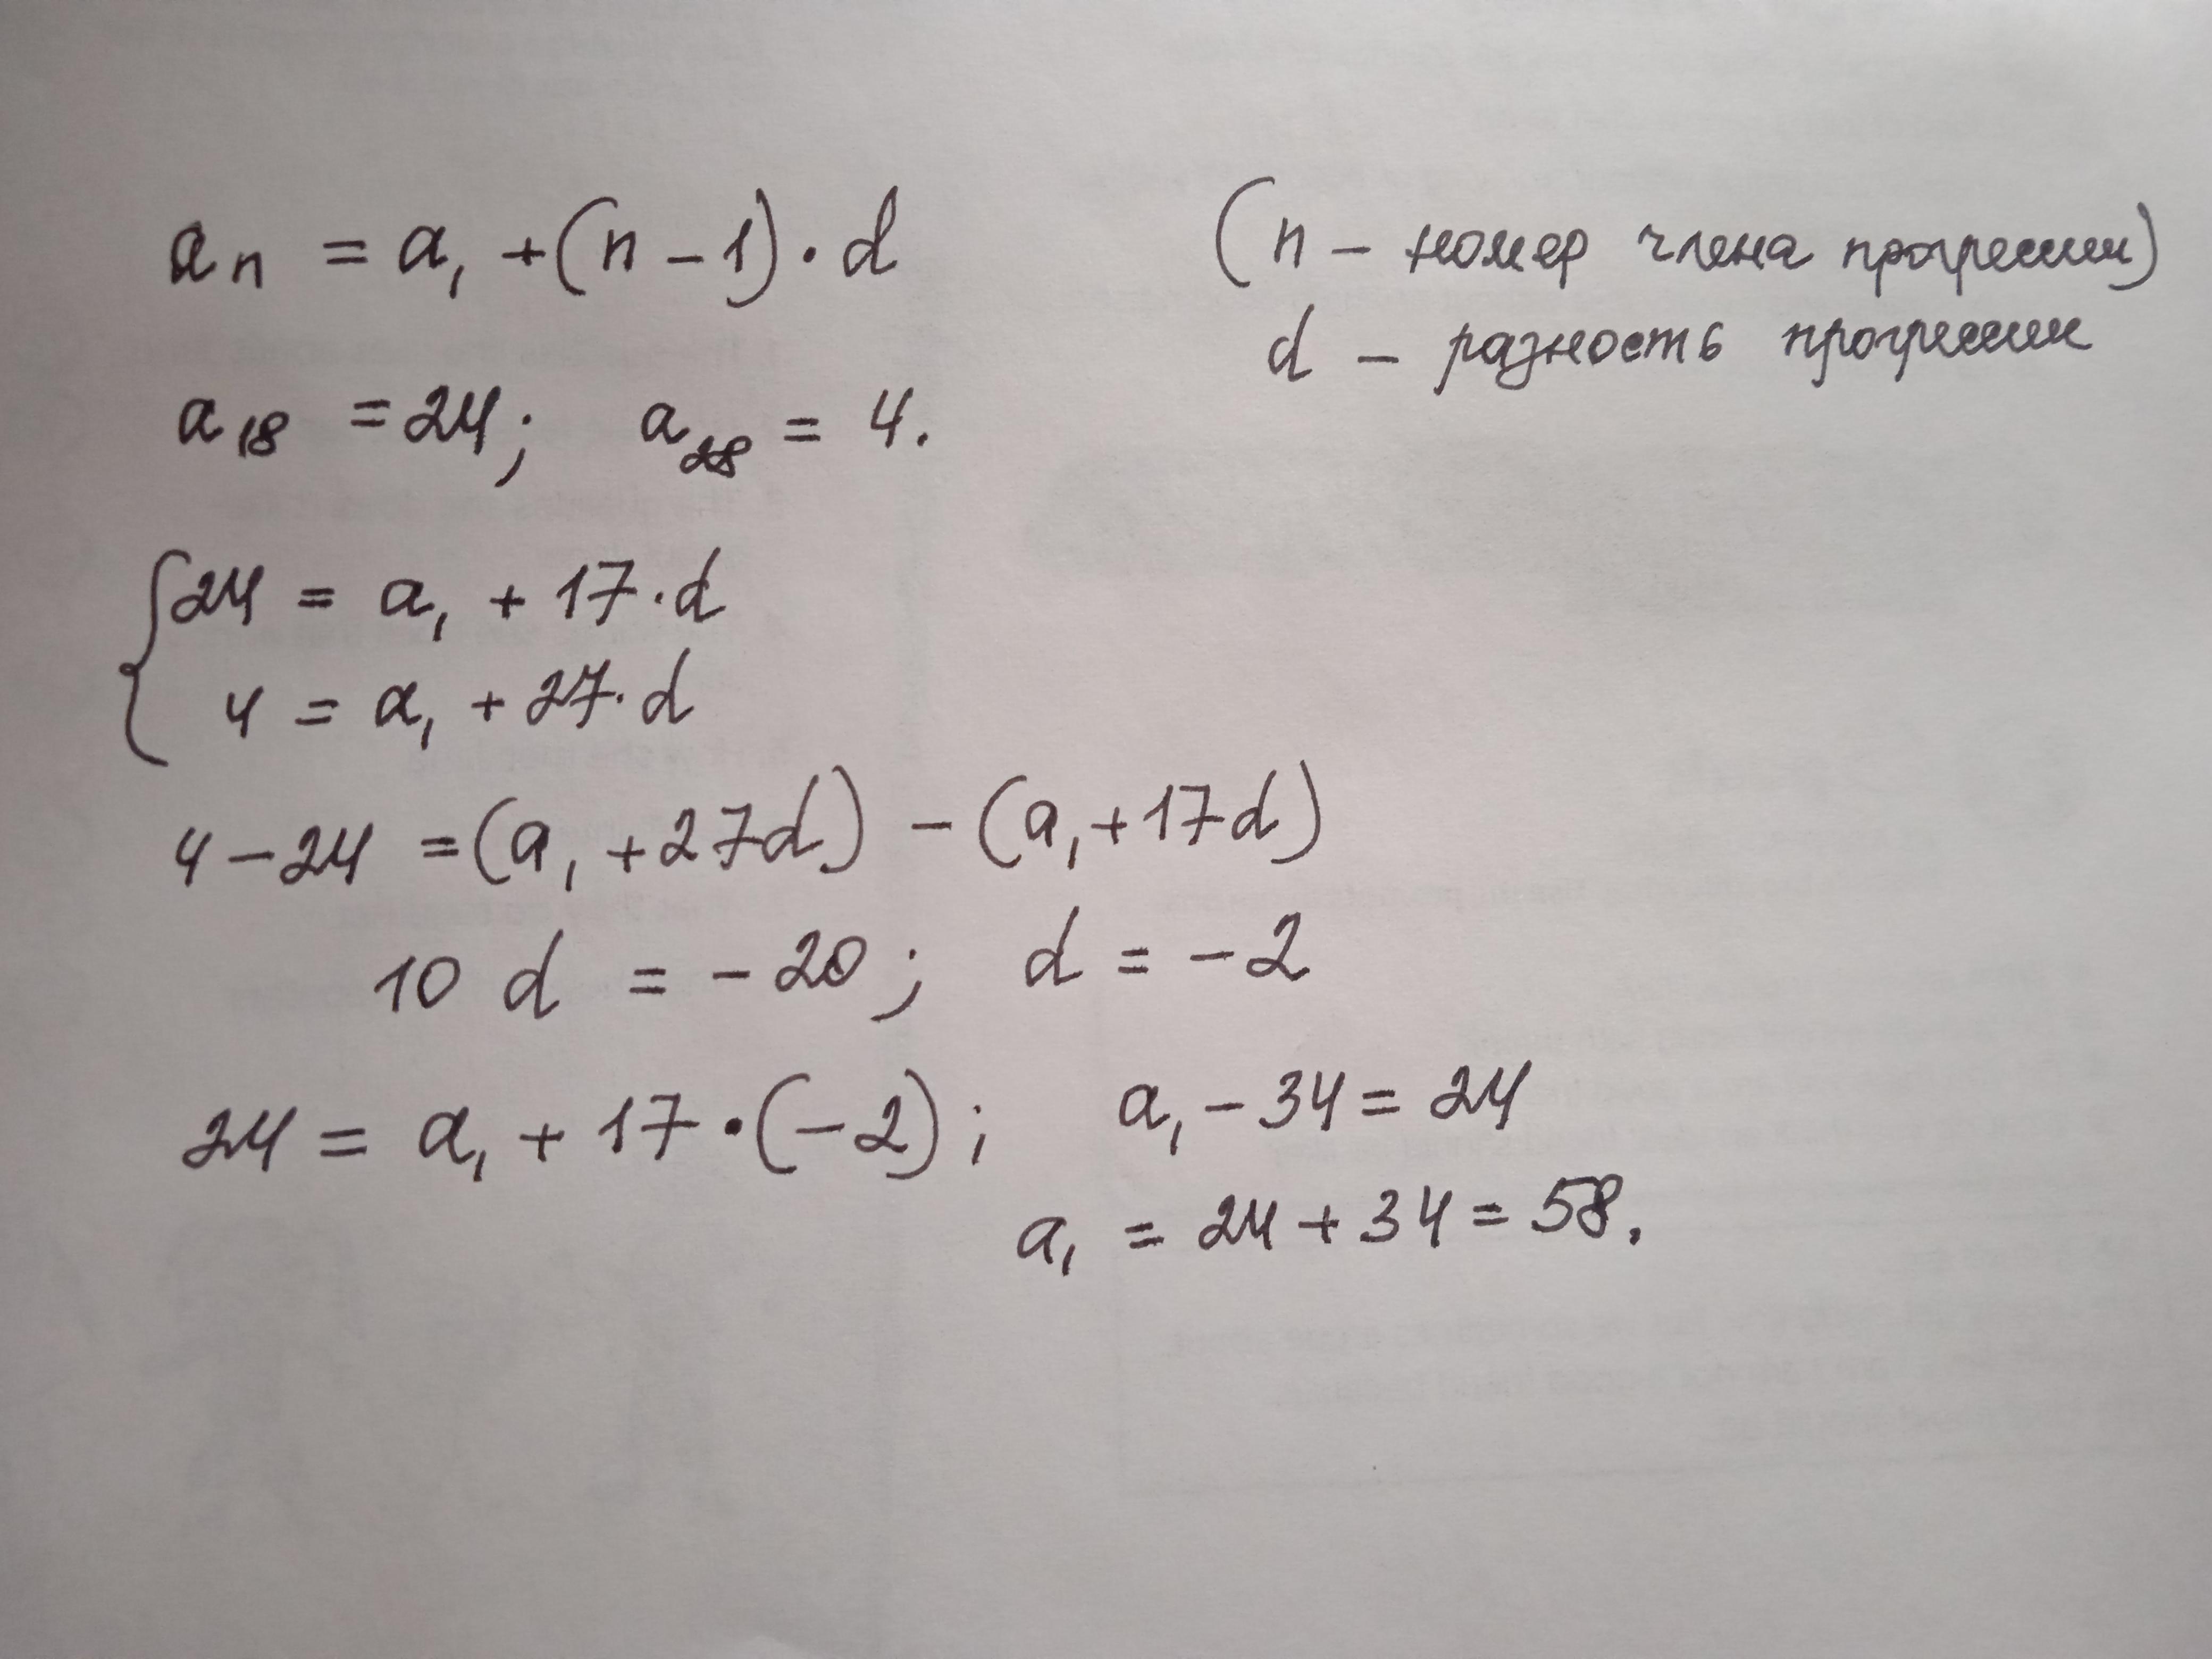 aₙ = a₁ + (n – 1) · d
(n – номер члена прогрессии)
d – разность прогрессии
a₁₈ = 24; a₂₈ = 4.
{ 24 = a₁ + 17 · d
4 = a₁ + 27 · d
4 – 24 = (a₁ + 27d) – (a₁ + 17d)
10 d = – 20; d = – 2
24 = a₁ + 17 · (– 2); a₁ – 34 = 24
a₁ = 24 + 34 = 58.